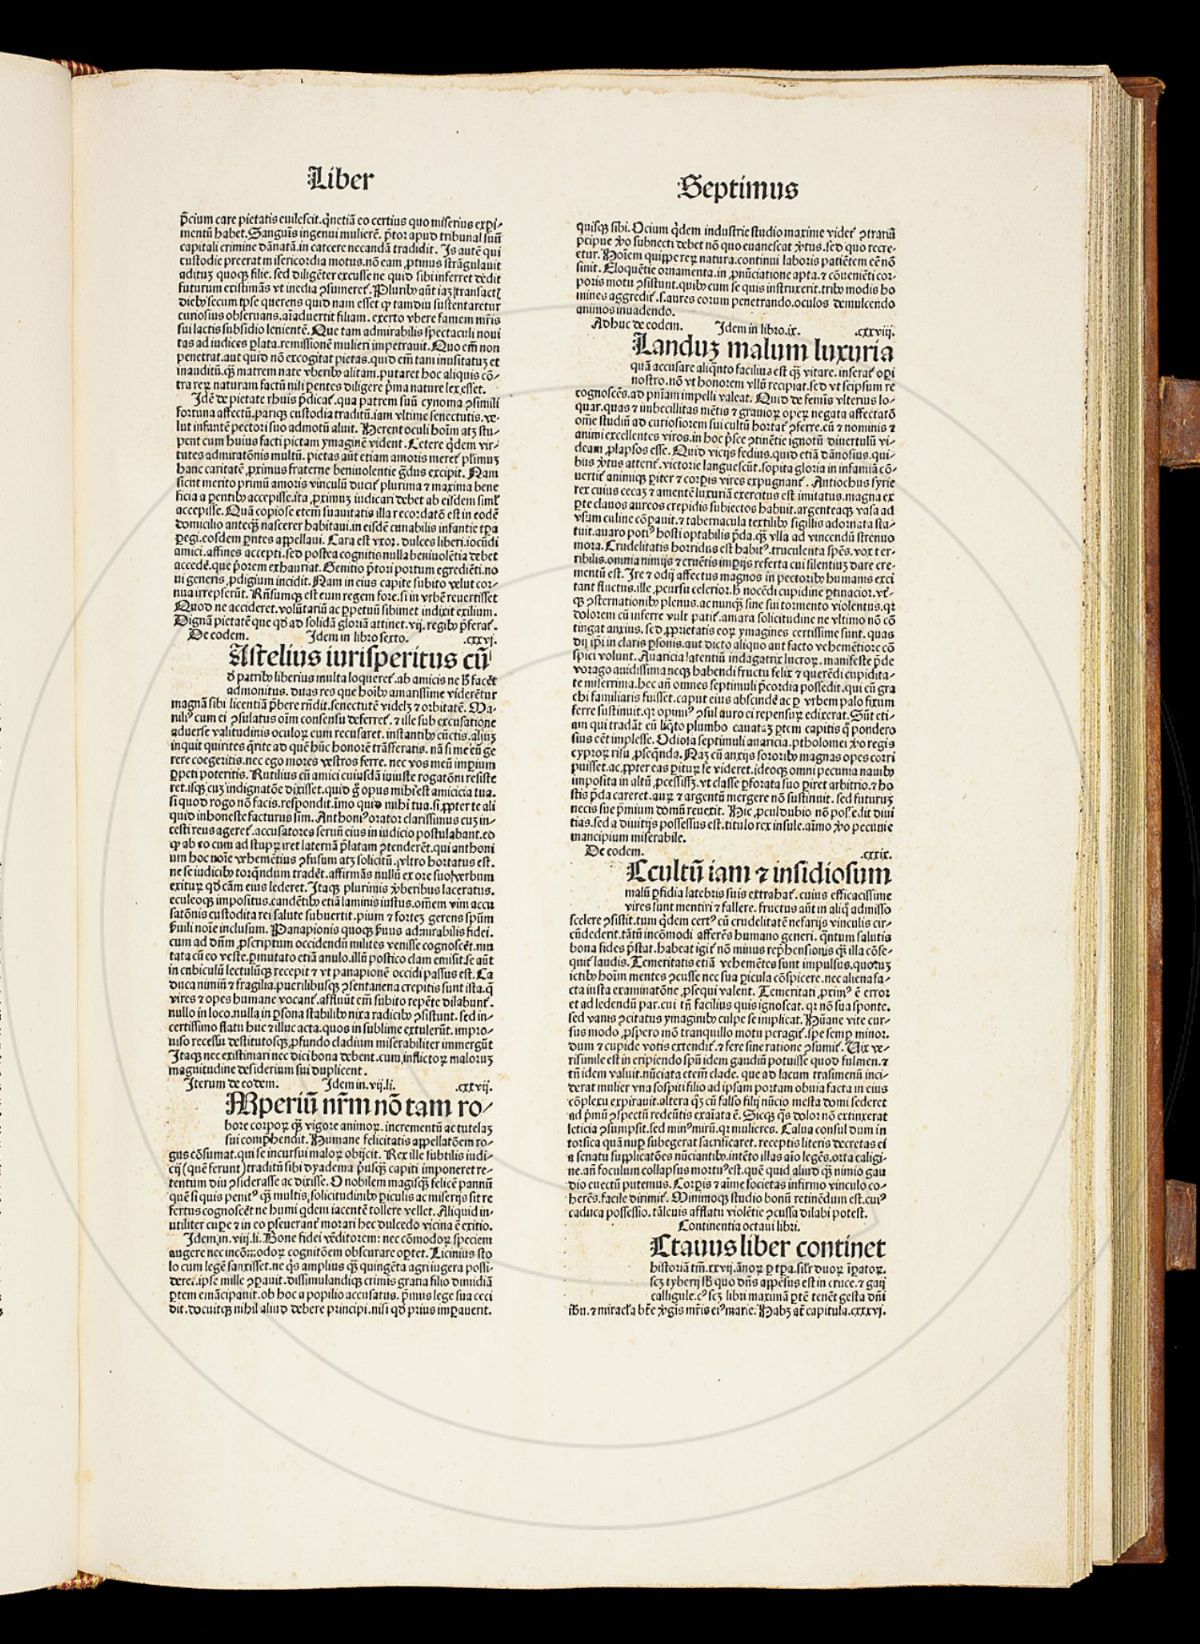 Liber
Septimus
p̄cium care pietatis euilescit.qn̄etiā eo certius quo miserius exꝑi-
mentū habet.Sanguīs ingenui mulierē. p̄tor apud tribunal suū
capitali crimine dānatā.in carcere necandā tradidit. Is autē qui
custodie preerat misericordia motus.nō eam ꝓtinus strāgulauit
aditūꝫ quoqꝫ filie. sed diligēter excusse ne quid sibi inferret dedit
futurum existimās vt inedia ꝯsumeret᷑. Pluribꝰ aūt iaꝫ transactꝭ
diebꝰ secum ip̄se querens quid nam esset ꝙ tamdiu sustentaretur
curiosius obseruans.aīaduertit filiam.exerto vbere famem mr̄is
sui lactis subsidio lenientē. Que tam admirabilis spectaculi noui
tas ad iudices ꝑlata.remissionē mulieri impetrauit. Quo em̄ non
penetrat.aut quid nō excogitat pietas.quid em̄ tam inusitatuꝫ et
inauditū.qꝫ matrem nate vberibꝰ alitam.putaret hoc aliquis cō-
tra reꝝ naturam factū nili ꝑentes diligere p̄ma nature lex esset.
Idē de pietate rhuis p̄dicat᷑.qua patrem suū cynoma ꝯsimili
fortuna affectū.pariqꝫ custodia traditū.iam vltime senectutis.ve-
lut infantē pectori suo admotū aluit. Herent oculi hoīm atꝫ stu-
pent cum huius facti pictam ymaginē vident. Cetere q̄dem vir-
tutes admiratōnis multū. pietas aūt etiam amoris meret᷑ pl̄imuꝫ
hanc caritatē ꝓximus fraterne beniuolentie gͣdus excipit. Nam
sicut merito primū amoris vinculū ducit᷑ plurima ⁊ maxima bene
ficia a ꝑentibꝰ accepisse.ita ꝓximuꝫ iudicari debet ab eisdem siml̄
accepisse. Quā copiose etem̄ suauitatis illa recordatō est in eodē
domicilio anteqꝫ nascerer habitaui.in eisdē cunabilis infantie tꝑa
ꝑegi.eosdem ꝑntes appellaui. Cara est vxoꝛ. dulces liberi.iocūdi
amici.affines accepti.sed postea cognitis nulla beniuolētia debet
accedē.que p̄orem exhauriat. Genitio p̄tori portum egredienti.no
ui generis ꝓdigium incidit. Nam in eius capite subito velut cor-
nua irrepserūt. Rn̄sumqꝫ est eum regem fore.si in vrbē reuertisset
Quod ne accideret.volūtariū ac ꝑpetuū sibimet indixit exilium.
Dignā pietatē que qͦd ad solidā gloriā attinet.vij.regibꝰ p̄ferat᷑.
De eodem. Idem in libro sexto. .cxxvi.
Astelius iurisperitus cū
ꝺ patribꝰ liberius multa loqueret᷑.ab amicis ne B̄ facēt
admonitus. duas res que hoībꝰ amarissime viderētur
magnā sibi licentiā p̄bere rn̄dit.senectutē videlꝫ ⁊ orbitatē. Ma-
niliꝰ cum ei ꝯsulatus oīm consensu deferret᷑. ⁊ ille sub excusatione
aduerse valitudinis oculoꝝ eum recusaret. instantibꝰ cūctis.aliuꝫ
inquit quirites q̄rite ad quē hūc honorē trāsferatis. nā si me eū ge
rere coegeritis.nec ego mores vestros ferre. nec vos meū imꝑium
ꝑpeti poteritis. Rutilius cū amici cuiusdā iniuste rogatōni resiste
ret.isqꝫ cuꝫ indignatōe dixisset.quid gͦ opus mihi est amicicia tua.
si quod rogo nō facis.respondit.imo quid mihi tua.si ꝓpter te ali
quid inhoneste facturus sim. Anthoniꝰ orator clarissimus cuꝫ in-
cesti reus ageret᷑.accusatores seruū eius in iudicio postulabant.eo
ꝙ ab eo cum ad stupꝝ iret laternā p̄latam ꝯtenderēt.qui anthoni
um hoc noīe vehemētius ꝯfusum atqꝫ solicitū.vltro hortatus est.
ne se iudicibꝰ torqūdum tradēt.affirmās nullū ex ore suo verbum
exitur qͦd cām eius lederet. Itaqꝫ plurimis ꝟberibus laceratus.
eculeoqꝫ impositus.candētibꝰ etiā laminis iustus.oīem vim accu
satōnis custodita rei salute subuertit.pium ⁊ forteꝫ gerens spūm
ꝟuili noīe inclusum. Panapionis quoqꝫ ꝟuus admirabilis fidei.
cum ad dn̄m ꝓscriptum occidendū milites venisse cognoscēt.mu
tata cū eo veste.ꝑmutato etiā anulo.illū postico clam emisit.se aūt
in cubiculū lectulūqꝫ recepit ⁊ vt panapionē occidi passus est. Ca
duca nimiū ⁊ fragilia.puerilibusqꝫ ꝯsentanena crepitis sunt ista.q̄
vires ⁊ opes humane vocant᷑.affluūt em̄ subito repēte dilabunt᷑.
nullo in loco.nulla in ꝑsona stabilibꝰ nixa radicibꝰ ꝯsistunt. sed in-
certissimo flatu huc ⁊ illuc acta.quos in sublime extulerūt. impro-
uiso recessu destitutosqꝫ ꝓfundo cladium miserabiliter immergūt
Itaqꝫ nec existimari nec dici bona debent.cum inflictoꝝ maloruꝫ
magnitudine desiderium sui duplicent.
Iterum de eodem. Idem in.vij.li. .cxxvij.
Mperiū nr̄m nō tam ro-
bore corporꝝ qꝫ vigore animoꝝ. incrementū ac tutelaꝫ
sui comp̄hendit. Humane felicitatis appellatōem ro-
gus cōsumat.qui se incursui maloꝝ obijcit. Rex ille subtilis iudi-
cij (quē ferunt) traditū sibi dyadema p̄usqꝫ capiti imponeret re-
tentum diu ꝯsiderasse ac dixisse. O nobilem magisqꝫ felicē pannū
quē si quis penitꝰ qꝫ multis solicitudinibꝰ ꝑiculis ac miserijs sit re
fertus cognoscēt ne humi q̄dem iacentē tollere vellet. Aliquid in-
utiliter cuꝑe ⁊ in eo ꝑseuerant᷑ morari hec dulcedo vicina ē exitio.
Idem.in.viij.li. Bone fidei vēditorem: nec cōmodoꝝ speciem
augere nec incōmodoꝝ cognitōem obscurare oꝑtet. Licinius sto
lo cum legē sanxisset.ne qͥs amplius qꝫ quingēta agri iugera possi-
deret.ipse mille ꝯꝑauit.dissimulandiqꝫ crimis gratia filio dimidiā
ꝑtem emācipauit.ob hoc a popilio accusatus. p̄mus lege sua ceci
dit.docuitqꝫ nihil aliud debere principi.nisi qͦd prius imꝑauerit.
quisqꝫ sibi. Ocium q̄dem industrie studio maxime videt᷑ ꝯtrariū
p̄cipue ꝟo subnecti debet nō quo euanescat ꝟtus.sed quo recre-
etur. Hoīem quippe reꝝ natura.continui laboris patiētem eē nō
sinit. Eloquētie ornamenta.in ꝓnūciatione apta.⁊ cōuenienti cor-
poris motu ꝯsistunt.quibꝰ cum se quis instruxerit.tribꝰ modis ho
mines aggredit᷑.s.aures eorum penetrando.oculos demulcendo
animos inuadendo.
Adhuc de eodem. Idem in libro.ix. .cxxviij.
Landuꝫ malum luxuria
quā accusare aliqͣnto facilius est qꝫ vitare. inserat᷑ oꝑi
nostro.nō vt honorem vllū recipiat.sed vt seipsum re
cognoscēs.ad pn̄iam impelli valeat. Quid de femīs vlterius lo-
quar.quas ⁊ imbecillitas mētis ⁊ grauioꝝ oꝑꝝ negata affectatō
oīe studiū ad curiosiorem sui cultū hortat᷑ ꝯferre.cū ⁊ nominis ⁊
animi excellentes viros.in hoc p̄sce ꝯtinētie ignotū diuertulū vi-
deam ꝓlapsos esse. Quid vicijs fedius.quid etiā dānosius.qui-
bus ꝟtus atterit᷑.victorie languescūt.sopita gloria in infamiā cō-
uertit᷑ animiqꝫ ꝑiter ⁊ corꝑis vires expugnant᷑. Antiochus syrie
rex cuius cecaꝫ ⁊ amentē luxuriā exercitus est imitatus.magna ex
ꝑte clauos aureos crepidis subiectos habuit.argenteaqꝫ vasa ad
vsum culine cōꝑauit.⁊ tabernacula textilibꝰ sigillis adornata sta-
tuit.auaro potiꝰ hosti optabilis p̄da.qꝫ vlla ad vincendū strenuo
mora. Crudelitatis horridus est habitꝰ.truculenta spēs. vox ter-
ribilis.omnia nimijs ⁊ cruētis imꝑijs referta cui silentiuꝫ dare cre-
mentū est. Ire ⁊ odij affectus magnos in pectoribꝰ humanis exci
tant fluctus.ille ꝓcursu celerior.h̄ nocēdi cupidine ꝑtinacior.vtͬ-
qꝫ ꝯsternationibꝰ plenus.ac nunqꝫ sine sui tormento violentus.qꝛ
dolorem cū inferre vult patit᷑.amara solicitudine ne vltimo nō cō
tingat anxius. sed ꝓprietatis eoꝝ ymagines certissime sunt.quas
dij ip̄i in claris ꝑsonis.aut dicto aliquo aut facto vehemētiore cō
spici volunt. Auaricia latentiū indagatrix lucroꝝ.manifeste p̄de
vorago auidissima.neqꝫ habendi fructu felix ⁊ querēdi cupidita-
te miserrima.hec añ omnes septimuli p̄cordia possedit.qui cū gra
chi familiaris fuisset.caput eius abscindē ac ꝑ vrbem palo fixum
ferre sustinuit.qꝛ opimiꝰ ꝯsul auro ei repensurꝫ edixerat. Sūt eti-
am qui tradāt eū liq̄to plumbo cauataꝫ ꝑtem capitis qͦ pondero
sius eēt implesse. Odiosa septimuli auaricia.ptholomei ꝟo regis
cyproꝝ risu ꝓseqͦnda. Naꝫ cū anxijs sordibꝰ magnas opes corri
puisset.ac ꝓpter eas ꝑiturꝫ se videret.ideoqꝫ omni pecunia nauibꝰ
imposita in altū ꝓcessisꝫ.vt classe ꝑforata suo ꝑiret arbitrio.⁊ ho
stis p̄da careret.aurꝫ ⁊ argentū mergere nō sustinuit. sed futuruꝫ
necis sue p̄mium domū reuexit. Hic ꝓculdubio nō possedit diui
tias.sed a diuitijs possessus est.titulo rex insule.aīmo ꝟo pecunie
mancipium miserabile.
De eodem. .cxxix.
Ccultū iam ⁊ insidiosum
malū ꝑfidia latebris suis extrahat᷑.cuius efficacissime
vires sunt mentiri ⁊ fallere. fructus aūt in aliqͦ admisso
scelere ꝯsistit.tum q̄dem certꝰ cū crudelitatē nefarijs vinculis cir-
cūdederit.tātū incōmodi afferēs humano generi. qͣntum salutis
bona fides p̄stat.habeat igit᷑ nō minus rep̄hensionis qꝫ illa cōse-
quit᷑ laudis. Temeritatis etiā vehemētes sunt impulsus.quoruꝫ
ictibꝰ hoīm mentes ꝯcusse nec sua ꝑicula cōspicere.nec aliena fa-
cta iusta examinatōne ꝓsequi valent. Temeritati ꝓximꝰ ē error
et ad ledendū par.cui tn̄ facilius quis ignoscat.qꝛ nō sua sponte.
sed vanis ꝯcitatus ymaginibꝰ culpe se implicat. Hūane vite cur-
sus modo ꝓspero mō tranquillo motu peragit᷑.spe semꝑ minor.
dum ⁊ cupide votis extendit᷑.⁊ fere sine ratione ꝯsumit᷑. Vix ve-
risimile est in eripiendo spū idem gaudiū potuisse quod fulmen.⁊
tn̄ idem valuit.nūciata etem̄ clade. que ad lacum trasimenū inci-
derat mulier vna sospiti filio ad ipsam portam obuia facta in eius
cōplexu expirauit.altera qͣꝫ cū falso filij nūcio mesta domi sederet
ad p̄mū ꝯspectū redeūtis exaīata ē. Sicqꝫ qͣs dolor nō extinxerat
leticia ꝯsumpsit.sed minꝰ mirū.qꝛ mulieres. Calua consul dum in
torsica quā nuꝑ subegerat sacrificaret. receptis literis decretas ei
a senatu supplicatōes nūciantibꝰ.intēto illas aīo legēs.orta caligi-
ne.añ foculum collapsus mortuꝰ est.quē quid aliud qꝫ nimio gau
dio euectū putemus. Corꝑis ⁊ aīme societas infirmo vinculo co-
herēs.facile dirimit᷑. Minimoqꝫ studio bonū retinēdum est.cuiꝰ
caduca possessio. tāleuis afflatu violētie ꝯcussa dilabi potest.
Continentia octaui libri.
Ctauus liber continet
historiā tm̄.xxvij.ānoꝝ ꝑ tꝑa.silꝛ duoꝝ īꝑatoꝝ.
scꝫ tyberij sB quo dn̄s appēsus est in cruce.⁊ gaij
calligule.cꝰ scꝫ libri maximā ꝑtē tenēt gesta dn̄i
ih̄u.⁊ miracl̄a bt̄e ꝟgīs mr̄is eiꝰ marie. Habꝫ at̄ capitula.cxxxvi.